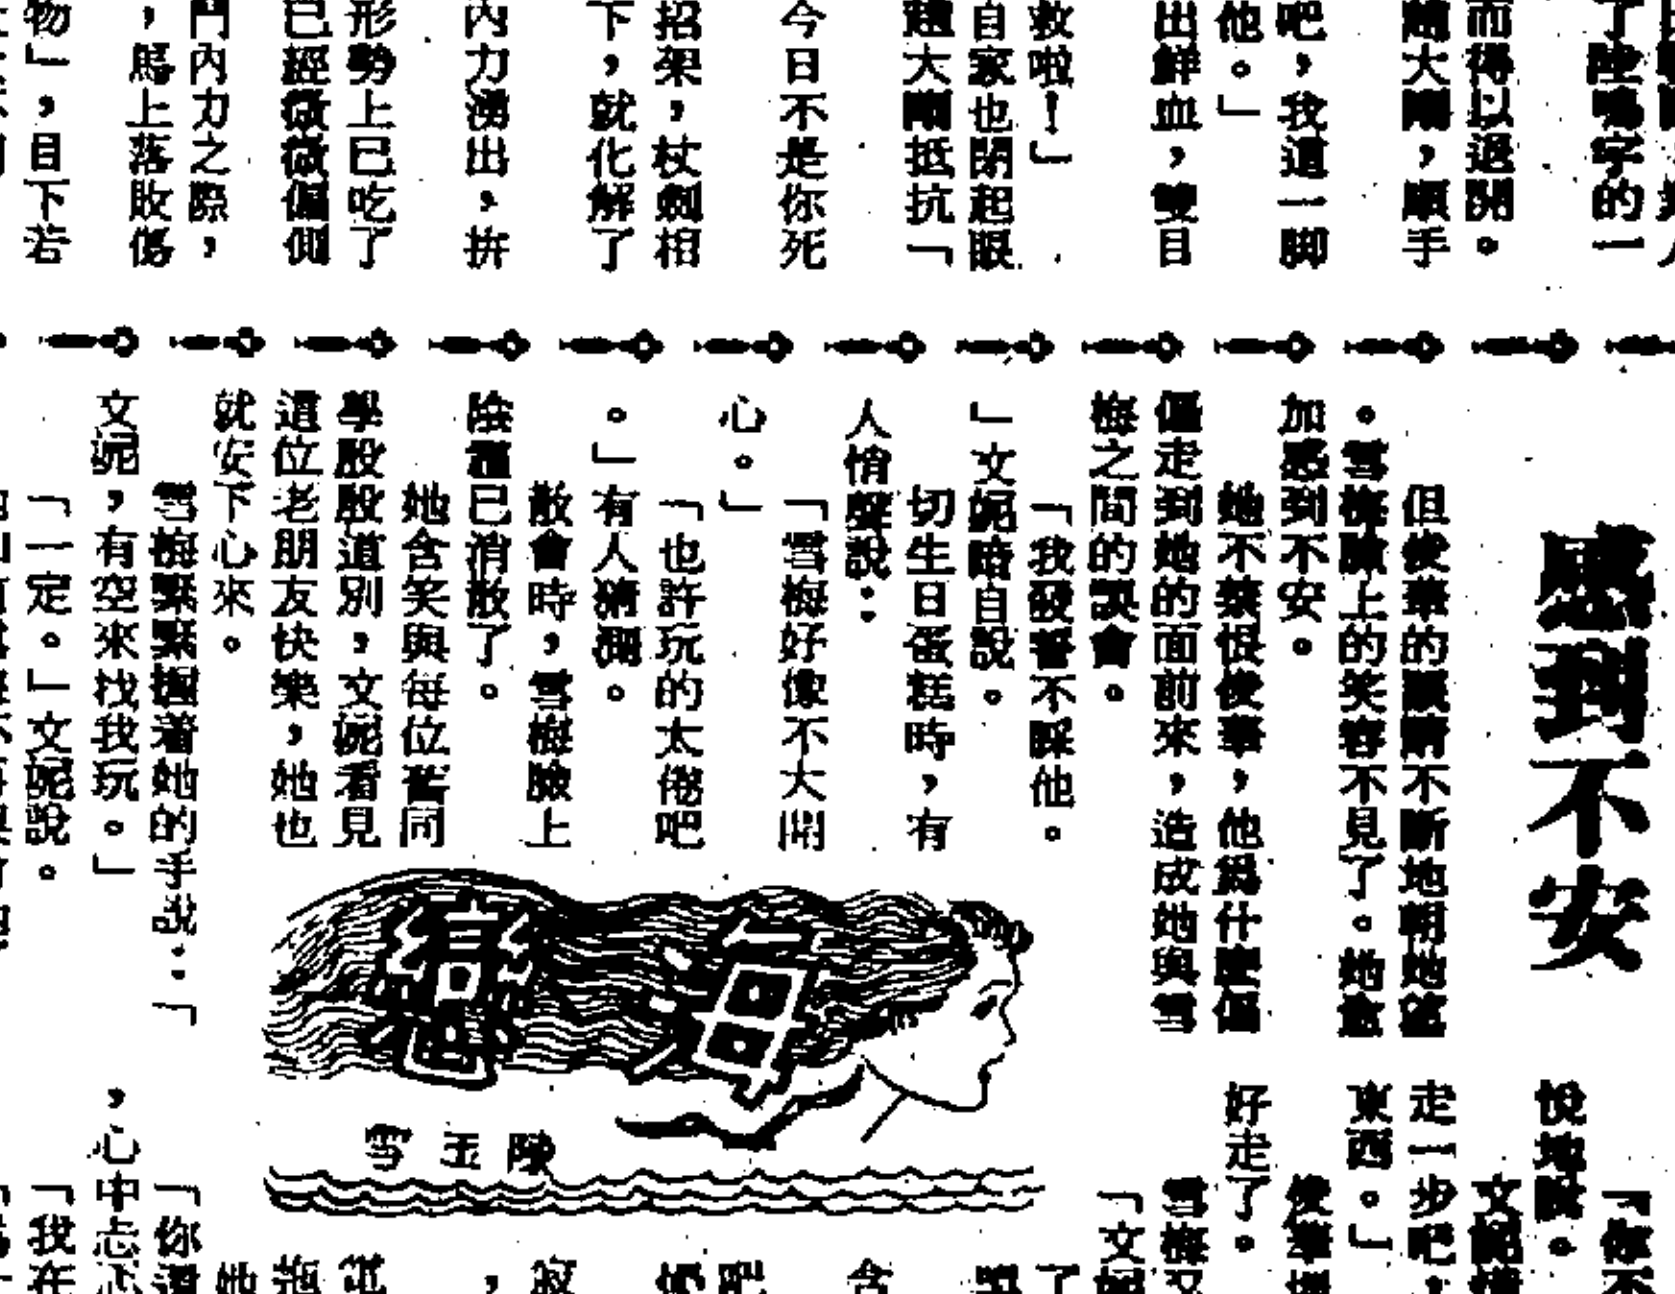 了陸鳴宇的一
而得以退開。
趙大剛，順手
吧，我這一脚
他。」
出鮮血，雙目
救啦！」
自家也閉起眼
趙大剛抵抗「
今日不是你死
招架，杖劍相
下，就化解了
內力湧出，拚
形勢上已吃了
已經微微偏側
鬥內力之際，
，馬上落敗傷
物」，目下若
感到不安
但俊華的眼睛不斷地朝她望
。雪梅臉上的笑容不見了。她愈
加感到不安。
她不禁恨俊華，他爲什麼偏
偏走到她的面前來，造成她與雪
梅之間的誤會。
「我發誓不睬他。
」文妮暗自說。
切生日蛋糕時，有
人悄聲說：
「雪梅好像不大開
心。」
「也許玩的太倦吧
。」有人猜測。
散會時，雪梅臉上
陰霾已消散了。
她含笑與每位舊同
學殷殷道別，文妮看見
這位老朋友快樂，她也
就安下心來。
雪梅緊緊握着她的手說：「
文妮，有空來找我玩。」
「一定。」文妮說。
海戀
陳玉雪
「你不
悅地說。
文妮
走一步吧，
東西。」
俊華
好走了。
雪梅又
「文妮
了
含
吧
寂
，
她
「你
，心中忐忑
「我在